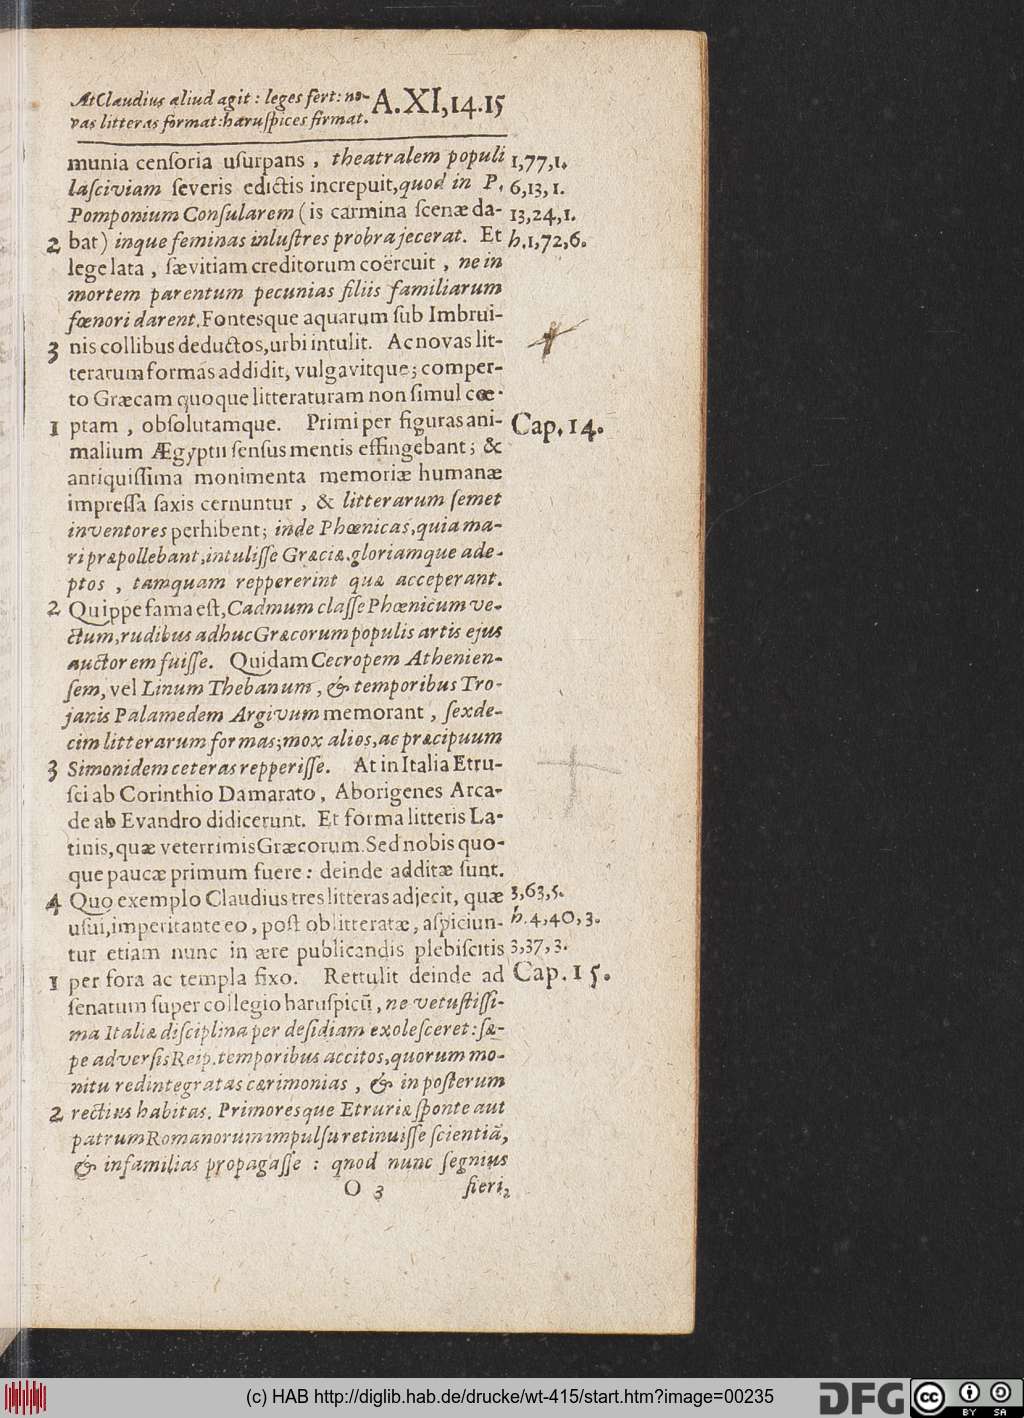 At Claudius aliud agit: leges fert: no-
vas litteras format: haruſpices firmat.
A.XI,14.15
munia cenſoria uſurpans, theatralem populi 1,77,1.
laſciviam ſeveris edictis increpuit, quod in P. 6,13,1.
Pomponium Conſularem (is carmina ſcenæ da- 13,24,1.
2 bat) inque feminas inluſtres probra jecerat. Et h.1,72,6.
lege lata, ſævitiam creditorum coërcuit, ne in
mortem parentum pecunias filiis familiarum
fœnori darent. Fontesque aquarum ſub Imbrui-
3 nis collibus deductos, urbi intulit. Ac novas lit-
terarum formas addidit, vulgavitque; comper-
to Græcam quoque litteraturam non ſimul cœ-
1 ptam, obſolutamque. Primi per figuras ani- Cap. 14.
malium Ægyptii ſenſus mentis effingebant; &
antiquiſſima monimenta memoriæ humanæ
impreſſa ſaxis cernuntur, & litterarum ſemet
inventores perhibent; inde Phœnicas, quia ma-
ri præpollebant, intuliſſe Græciæ, gloriamque ade-
ptos, tamquam reppererint quæ acceperant.
2 Quippe fama eſt, Cadmum claſſe Phœnicum ve-
ctum, rudibus adhuc Græcorum populis artis ejus
auctorem fuiſſe. Quidam Cecropem Athenien-
ſem, vel Linum Thebanum, & temporibus Tro-
janis Palamedem Argivum memorant, ſexde-
cim litterarum formas; mox alios, ac præcipuum
3 Simonidem ceteras repperiſſe. At in Italia Etru-
ſci ab Corinthio Damarato, Aborigenes Arca-
de ab Evandro didicerunt. Et forma litteris La-
tinis, quæ veterrimis Græcorum. Sed nobis quo-
que paucæ primum fuere: deinde additæ ſunt.
4 Quo exemplo Claudius tres litteras adjecit, quæ 3,63,5.
uſui, imperitante eo, poſt oblitteratæ, aſpiciun- h.4,40,3.
tur etiam nunc in ære publicandis plebiſcitis 3,37,3.
1 per fora ac templa fixo. Rettulit deinde ad Cap. 15.
ſenatum ſuper collegio haruſpicũ, ne vetuſtiſſi-
ma Italiæ diſciplina per deſidiam exoleſceret: ſæ-
pe adverſis Reip. temporibus accitos, quorum mo-
nitu redintegratas cærimonias, & in poſterum
2 rectius habitas. Primoresque Etruriæ ſponte aut
patrum Romanorum impulſu retinuiſſe ſcientiã,
& in familias propagaſſe: quod nunc ſegnius
O 3 fieri,
(c) HAB http://diglib.hab.de/drucke/wt-415/start.htm?image=00235
DFG
cc BY SA